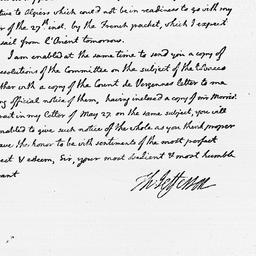 tive to Algiers which could not be in readiness to go with my
of the 27th inst. by the French packet, which I expect
sail from L'Orient tomorrow.
I am enabled at the same time to send you a copy of
resolutions of the Committee on the subject of the
ther with a copy of the Count de Vergennes letter to me
official notice of them, having inclosed a copy of mr Morris's
in my letter of May 27 on the same subject, you will
nabled to give such notice of the whole as you think proper
ave the honor to be with sentiments of the most perfect
ect & esteem, Sir, your most obedient & most humble
vant
Th: Jefferson